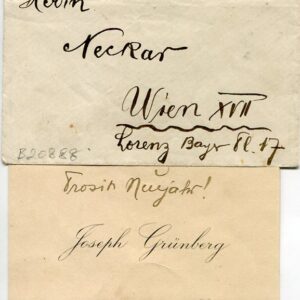 Herrn
Neckar
Wien XVII
Lorenz Bayr Pl. 17
B20888
Prosit Neujahr!
Joseph Grünberg